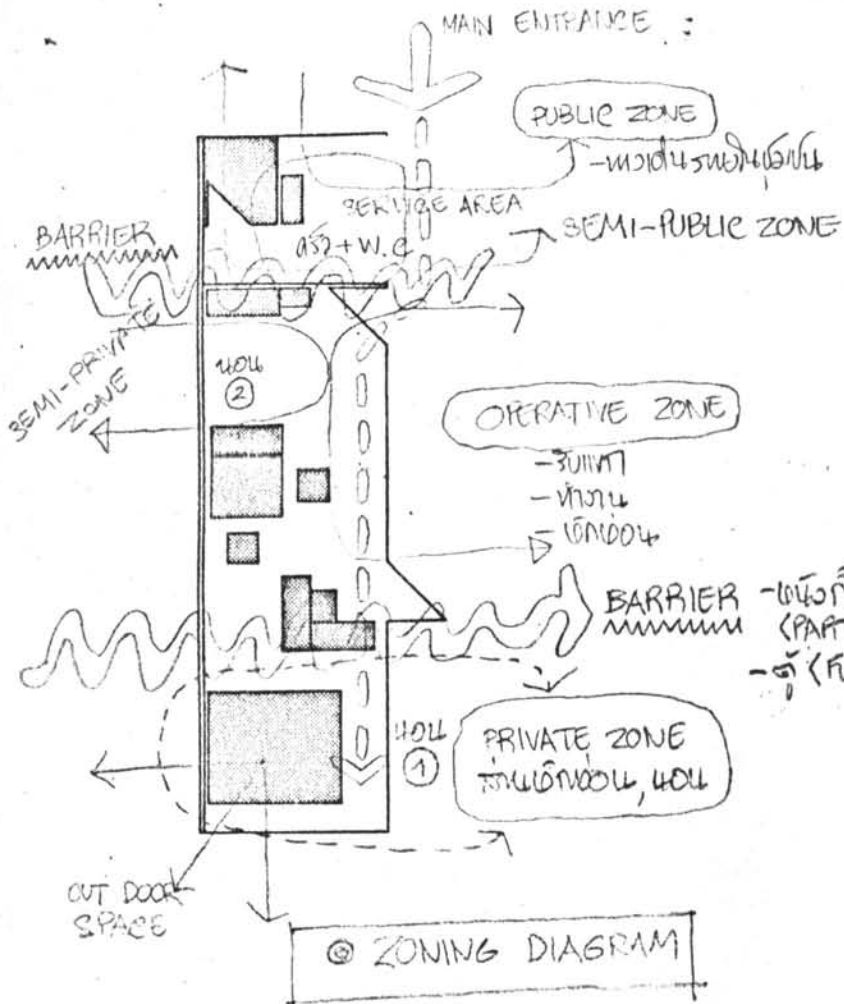 MAIN ENTRANCE :
PUBLIC ZONE
SERVICE AREA
BARRIER
ครัว + W.C
SEMI-PUBLIC ZONE
SEMI-PRIVATE
ZONE
นอน
②
OPERATIVE ZONE
- รับแขก
- ทำงาน
- พักผ่อน
BARRIER
(PAR
- ตู้
นอน
①
PRIVATE ZONE
ส่วนพักผ่อน, นอน
OUT DOOR
SPACE
◎ ZONING DIAGRAM